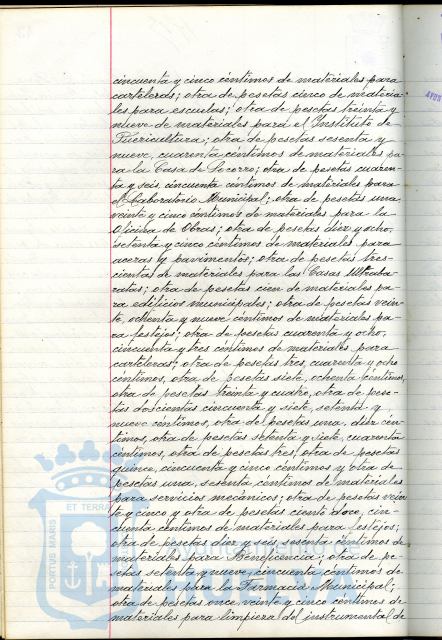 cincuenta y cinco céntimos de materiales para
carteleras; otra de pesetas cinco de materia-
les para escuelas; otra de pesetas treinta y
nueve de materiales para el Instituto de
Puericultura; otra de pesetas sesenta y
nueve, cuarenta céntimos de materiales pa-
ra la Casa de Socorro; otra de pesetas cuaren-
ta y seis, cincuenta céntimos de materiales para
el Laboratorio Municipal; otra de pesetas una
veinte y cinco céntimos de materiales para la
Oficina de Obras; otra de pesetas diez y ocho,
setenta y cinco céntimos de materiales para
aceras y pavimentos; otra de pesetas tres-
cientas de materiales para las Casas Ultraba-
ratas; otra de pesetas cien de materiales pa-
ra edificios municipales; otra de pesetas vein-
te, ochenta y nueve céntimos de materiales pa-
ra festejos; otra de pesetas cuarenta y ocho,
cincuenta y tres céntimos de materiales para
carteleras; otra de pesetas tres, cuarenta y ocho
céntimos, otra de pesetas siete, ochenta céntimos,
otra de pesetas treinta y cuatro, otra de pese-
tas doscientas cincuenta y siete, setenta y
nueve céntimos, otra de pesetas una, diez cén-
timos, otra de pesetas setenta y siete, cuarenta
céntimos, otra de pesetas tres, otra de pesetas
quince, cincuenta y cinco céntimos y otra de
pesetas una, sesenta céntimos de materiales
para servicios mecánicos; otra de pesetas vein
te y cinco y otra de pesetas ciento doce, cin-
cuenta céntimos de materiales para festejos;
otra de pesetas diez y seis, sesenta céntimos de
materiales para Beneficencia; otra de pe-
setas setenta y nueve, cincuenta céntimos de
materiales para la Farmacia Municipal;
otra de pesetas once, veinte y cinco céntimos de
materiales para limpieza del instrumental de
PORTUS MARIS ET TERRA